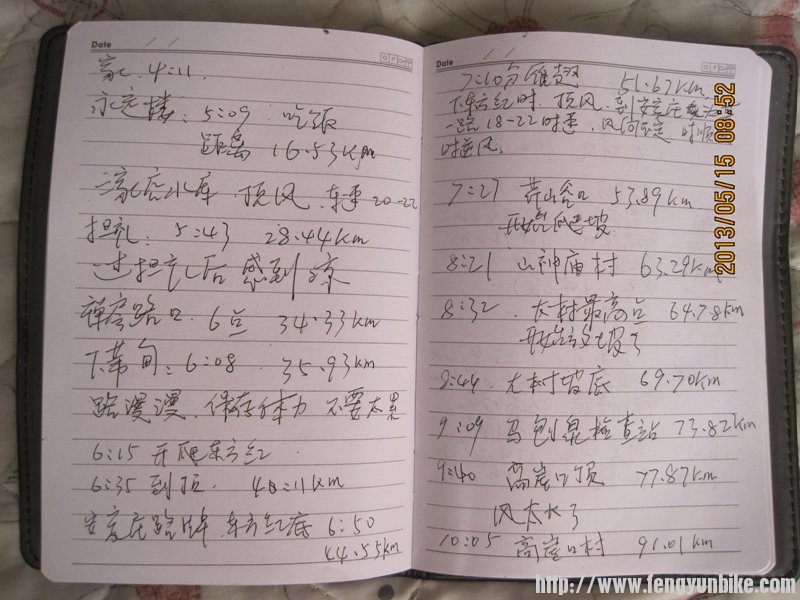 Date / /
家. 4:11.
永定楼: 5:09 吃饭
距离 16.53Km
三家店水库 顶风. 车速 20-22
担礼: 5:43 28.44Km
过担礼后 感到凉
路口. 6点 34.33Km
下苇甸: 6:08 35.93Km
路漫漫, 保存体力 不要太累
6:15 开爬东方红
6:35 到顶. 40.11Km
安家庄路牌 东方红底 6:50
44.55Km
Date / /
7:10分 雁翅 51.67Km
下东方红时. 顶风. 到安家庄
一路 18-22 时速. 风向不定 时顺
时逆风.
7:27 芹山谷口 53.89Km
开始爬坡
8:21 山神庙村 63.29Km
8:32. 大村最高点 64.78Km
开始放坡了
8:44. 大村坡底 69.70Km
9:09 马刨泉检查站 73.82Km
9:40 高崖口顶 77.87Km
风太大了
10:05 高崖口村 91.01Km
2013/05/15 08:52
http://www.fengyunbike.com